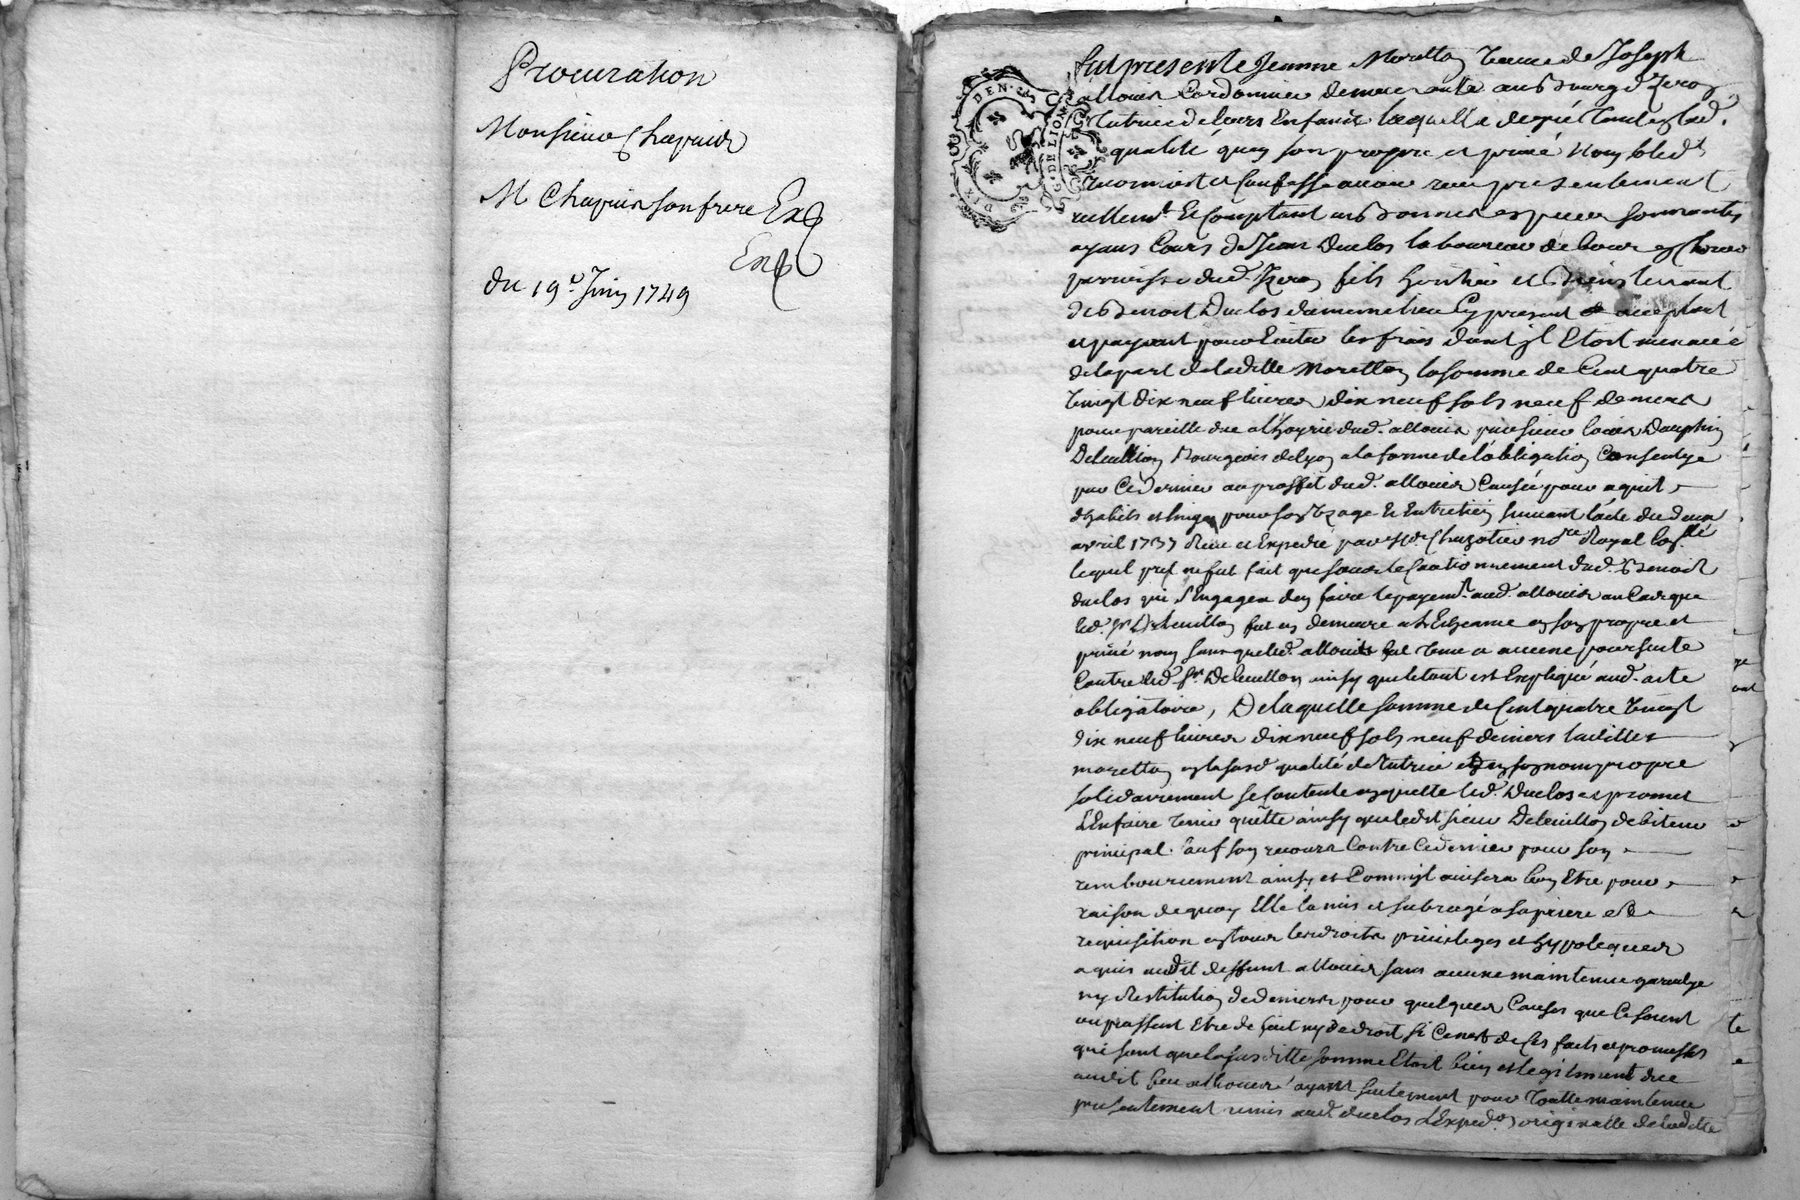 Procuration
Monsieur Chapuis
M Chapuis son frere Exp
Exp
du 19e Juin 1749
DIX DEN.
G. DE LION
fut presente Jeanne Moretton veuve de Joseph
allouis Cordonnier demeurante au Bourg d
tutrice de leurs Enfants laquelle de gré tant esd.
qualité quen son propre et privé nom solid.t
reconnoist et Confesse avoir reçu presentement
reellem.t et Comptant en bonnes especes sonnantes
ayans Cours de Jean Duclos laboureur de
parroisse dud. fils heritier et Bienstenant
de Benoit Duclos du meme lieu Cy present et acceptant
et payant pour Eviter les frais dont jl Etoit menacé
de la part de laditte Moretton la somme de Cent quatre
vingt dix neuf livres dix neuf sols neuf deniers
pour pareille due a lhoyrie dud. allouis par sieur Louis Dauphin
Deleuillon Bourgeois de Lyon a la forme de lobligation Consentye
par Ce dernier au proffit dud. allouis Causée pour
dhabits et linges pour son Usage et Entretien suivant lacte du deux
avril 1737 Reçu et Expedié par M.e Chazotier no.re Royal
lequel pret ne fut fait que sous le Cautionnement dud. Benoit
duclos qui sEngagea den faire le payem.t aud. allouis au Cas que
led. s.r Deleuillon fut en demeure a lEcheance en son propre et
privé nom sans que led. allouis fut tenu a aucune poursuite
Contre led. s.r Deleuillon ainsy que le tout est Expliqué aud. acte
obligatoire, De laquelle somme de Cent quatre vingt
dix neuf livres dix neuf sols neuf deniers laditte
moretton en la susd. qualité de tutrice et en son nom propre
solidairement se Contente en quitte led. Duclos et promet
lEn faire tenir quitte ainsy que ledit sieur Deleuillon debiteur
principal. sauf son recours Contre Ce dernier pour son
remboursement ainsy et Comm'jl avisera bon Etre pour
raison de quoy Elle la mis et subrogé a sa priere et
requisition en tous les droits privileges et hypoteques
aquis audit deffunt allouis sans aucune maintenue garentye
ny Restitution de deniers pour quelques Causes que Ce soient
ou puissent Etre de fait ny de droit si Cenest de ses faits et promesses
qui sont que la susditte somme Etoit bien et legitimement due
audit feu allouis ayant seulement pour toutte maintenue
presentement remis aud. duclos lExped.on originalle de laditte